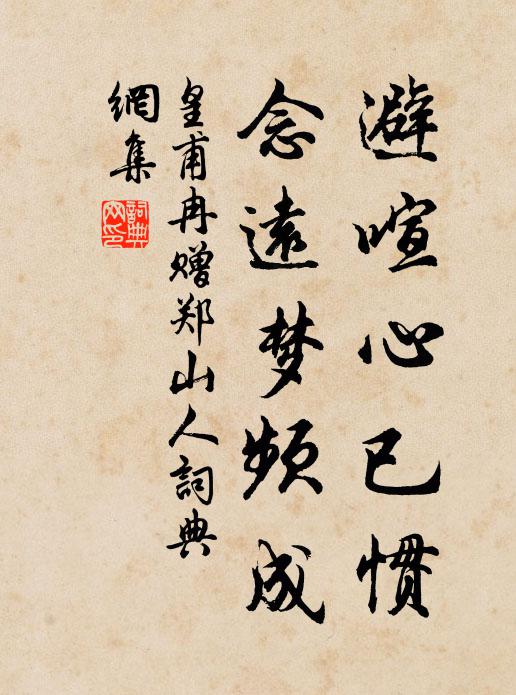 避喧心已惯
念遠梦频成
皇甫冉赠郑山人詞典
網集
詞典
网印